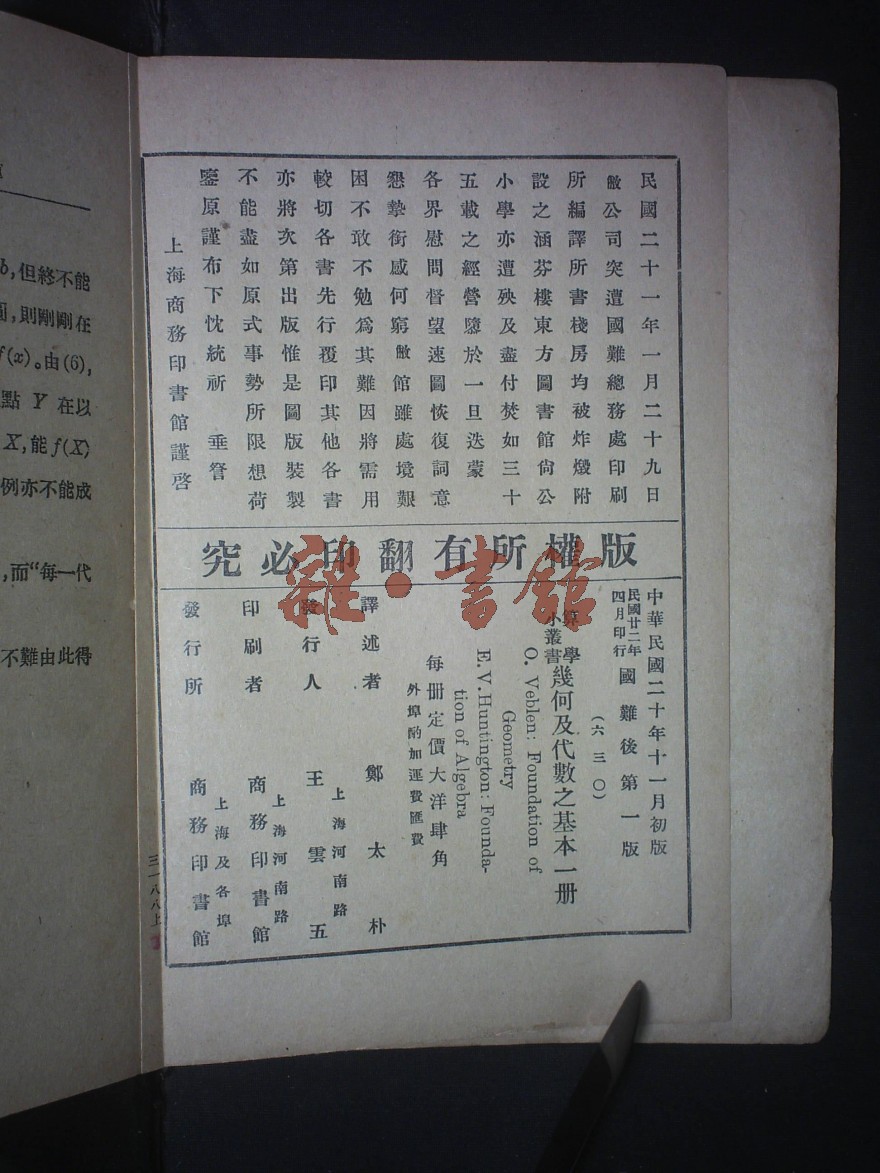 民國二十一年一月二十九日
敝公司突遭國難總務處印刷
所編譯所書棧房均被炸燬附
設之涵芬樓東方圖書館尙公
小學亦遭殃及盡付焚如三十
五載之經營隳於一旦迭蒙
各界慰問督望速圖恢復詞意
懇摯銜感何窮敝館雖處境艱
困不敢不勉爲其難因將需用
較切各書先行覆印其他各書
亦將次第出版惟是圖版裝製
不能盡如原式事勢所限想荷
鑒原謹布下忱統祈 垂詧
上海商務印書館謹啓
版權所有翻印必究
中華民國二十年十一月初版
民國廿二年四月印行 國難後第一版
(六三〇)
算學小叢書 幾何及代數之基本一册
O. Veblen: Foundation of
Geometry
E. V. Huntington: Founda-
tion of Algebra
每册定價大洋肆角
外埠酌加運費匯費
譯述者 鄭太朴
發行人 王雲五
上海河南路
印刷者 商務印書館
上海河南路
發行所 商務印書館
上海及各埠
三一八八上
雜·書館
b,但終不能
則剛剛在
f(x)。由(6),
點 Y 在以
X,能 f(X)
例亦不能成
,而“每一代
不難由此得